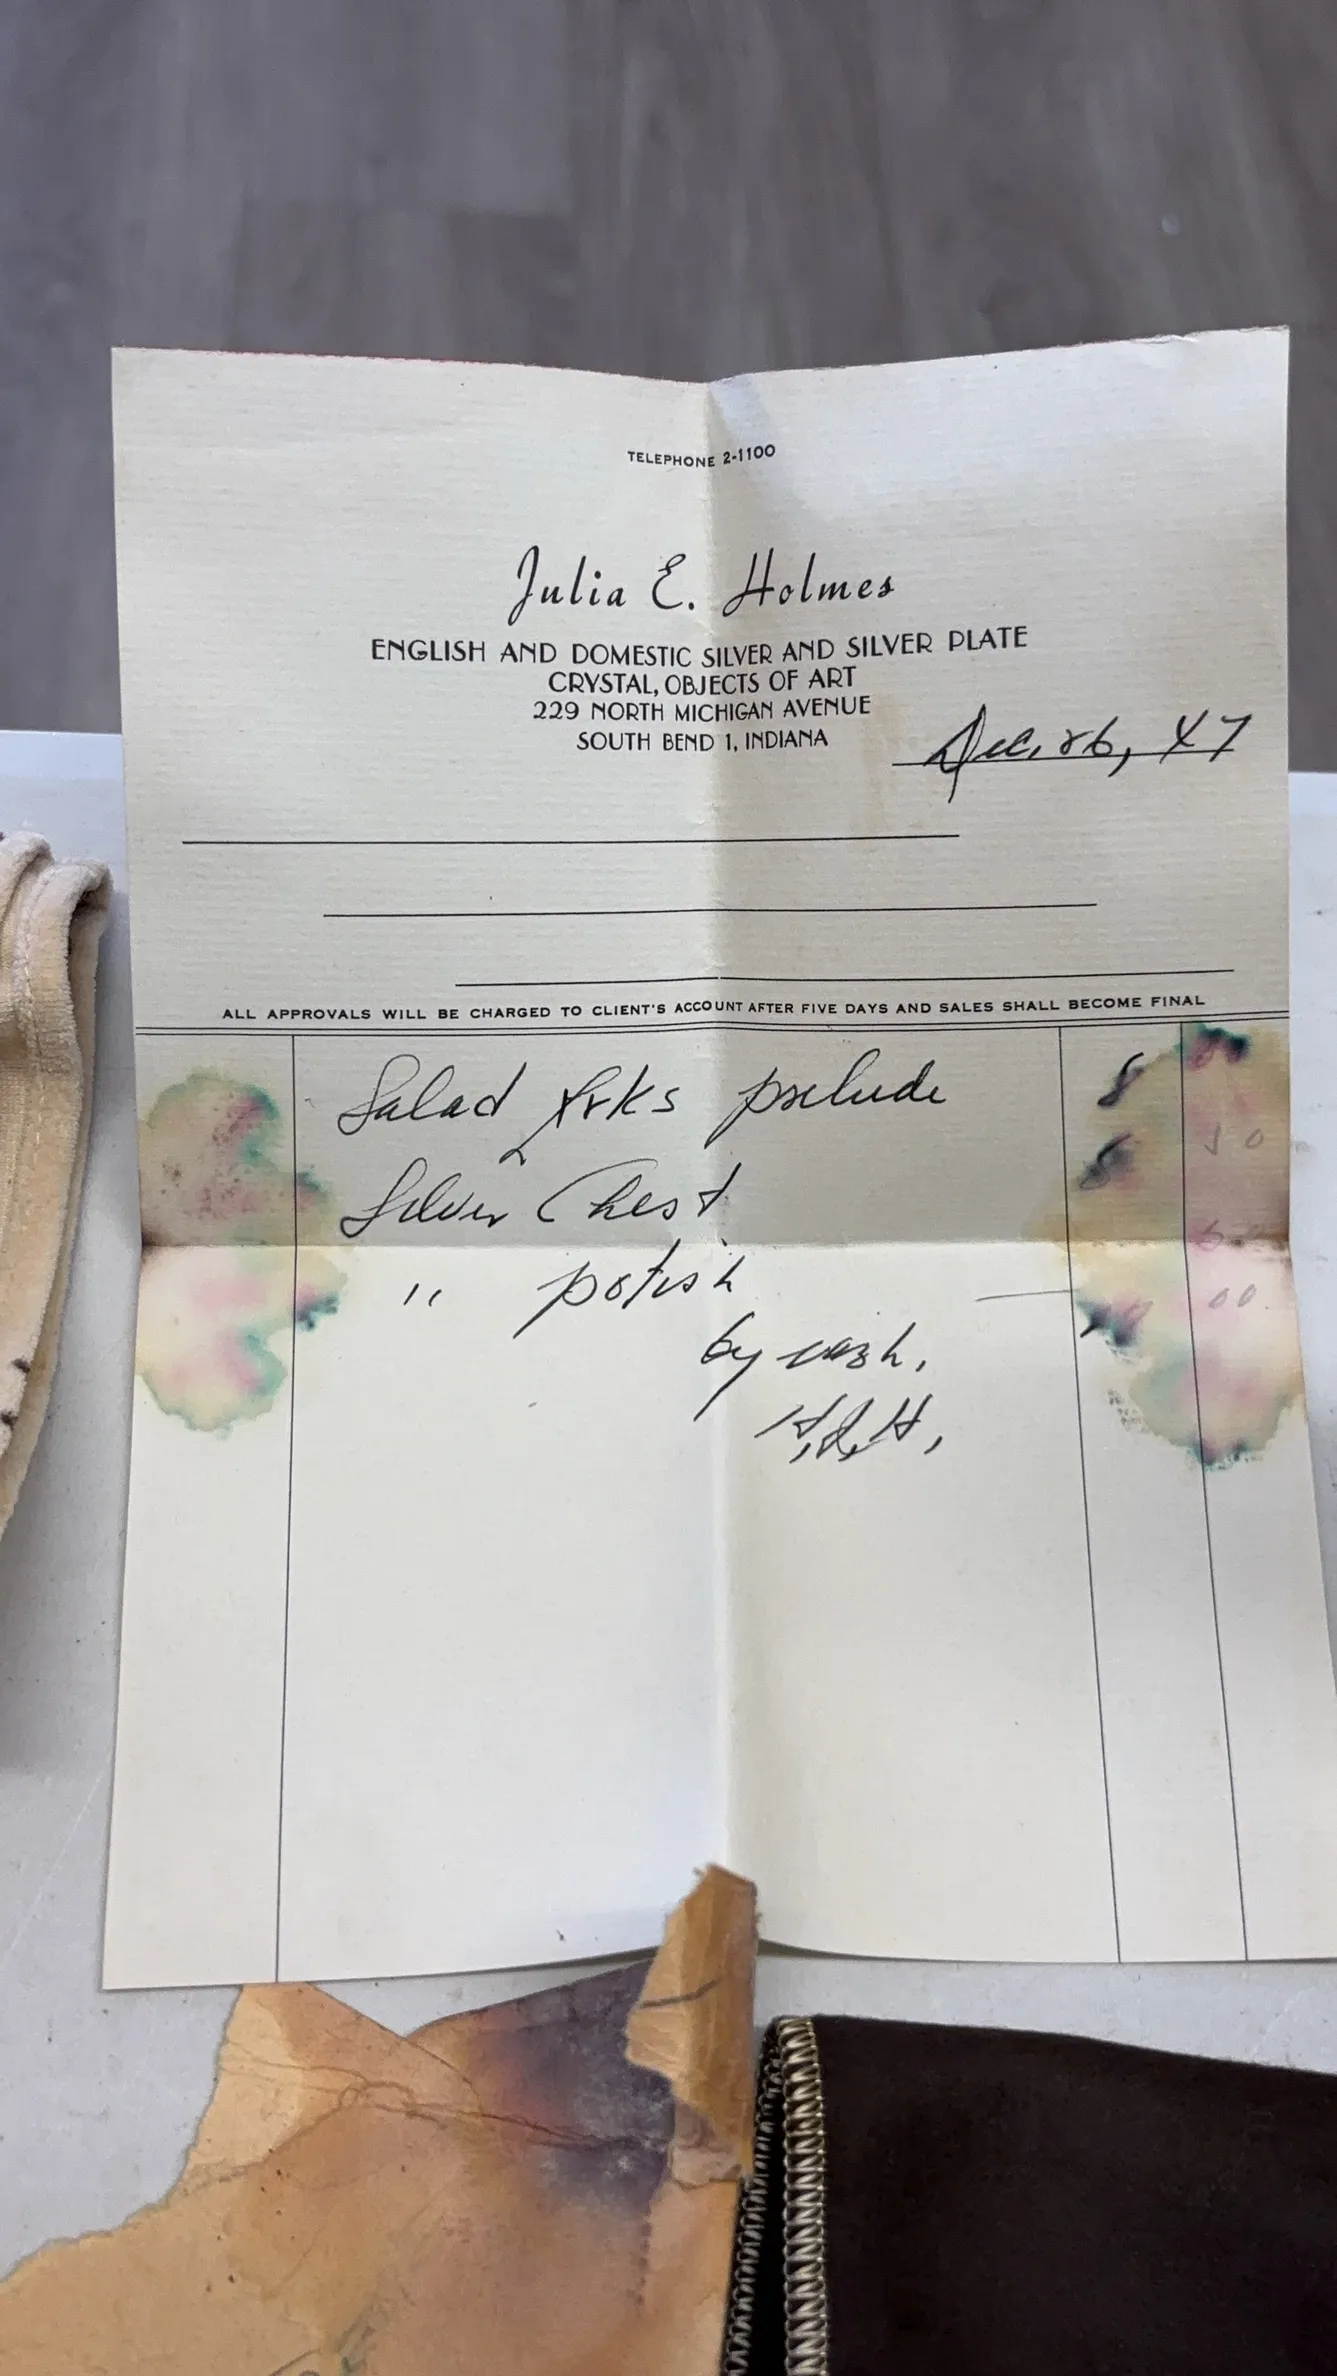 TELEPHONE 2-1100
Julia E. Holmes
ENGLISH AND DOMESTIC SILVER AND SILVER PLATE
CRYSTAL, OBJECTS OF ART
229 NORTH MICHIGAN AVENUE
SOUTH BEND 1, INDIANA
Dec. 26, 47
ALL APPROVALS WILL BE CHARGED TO CLIENT'S ACCOUNT AFTER FIVE DAYS AND SALES SHALL BECOME FINAL
Salad frks prelude 8
Silver Chest
" polish 00
by cash.